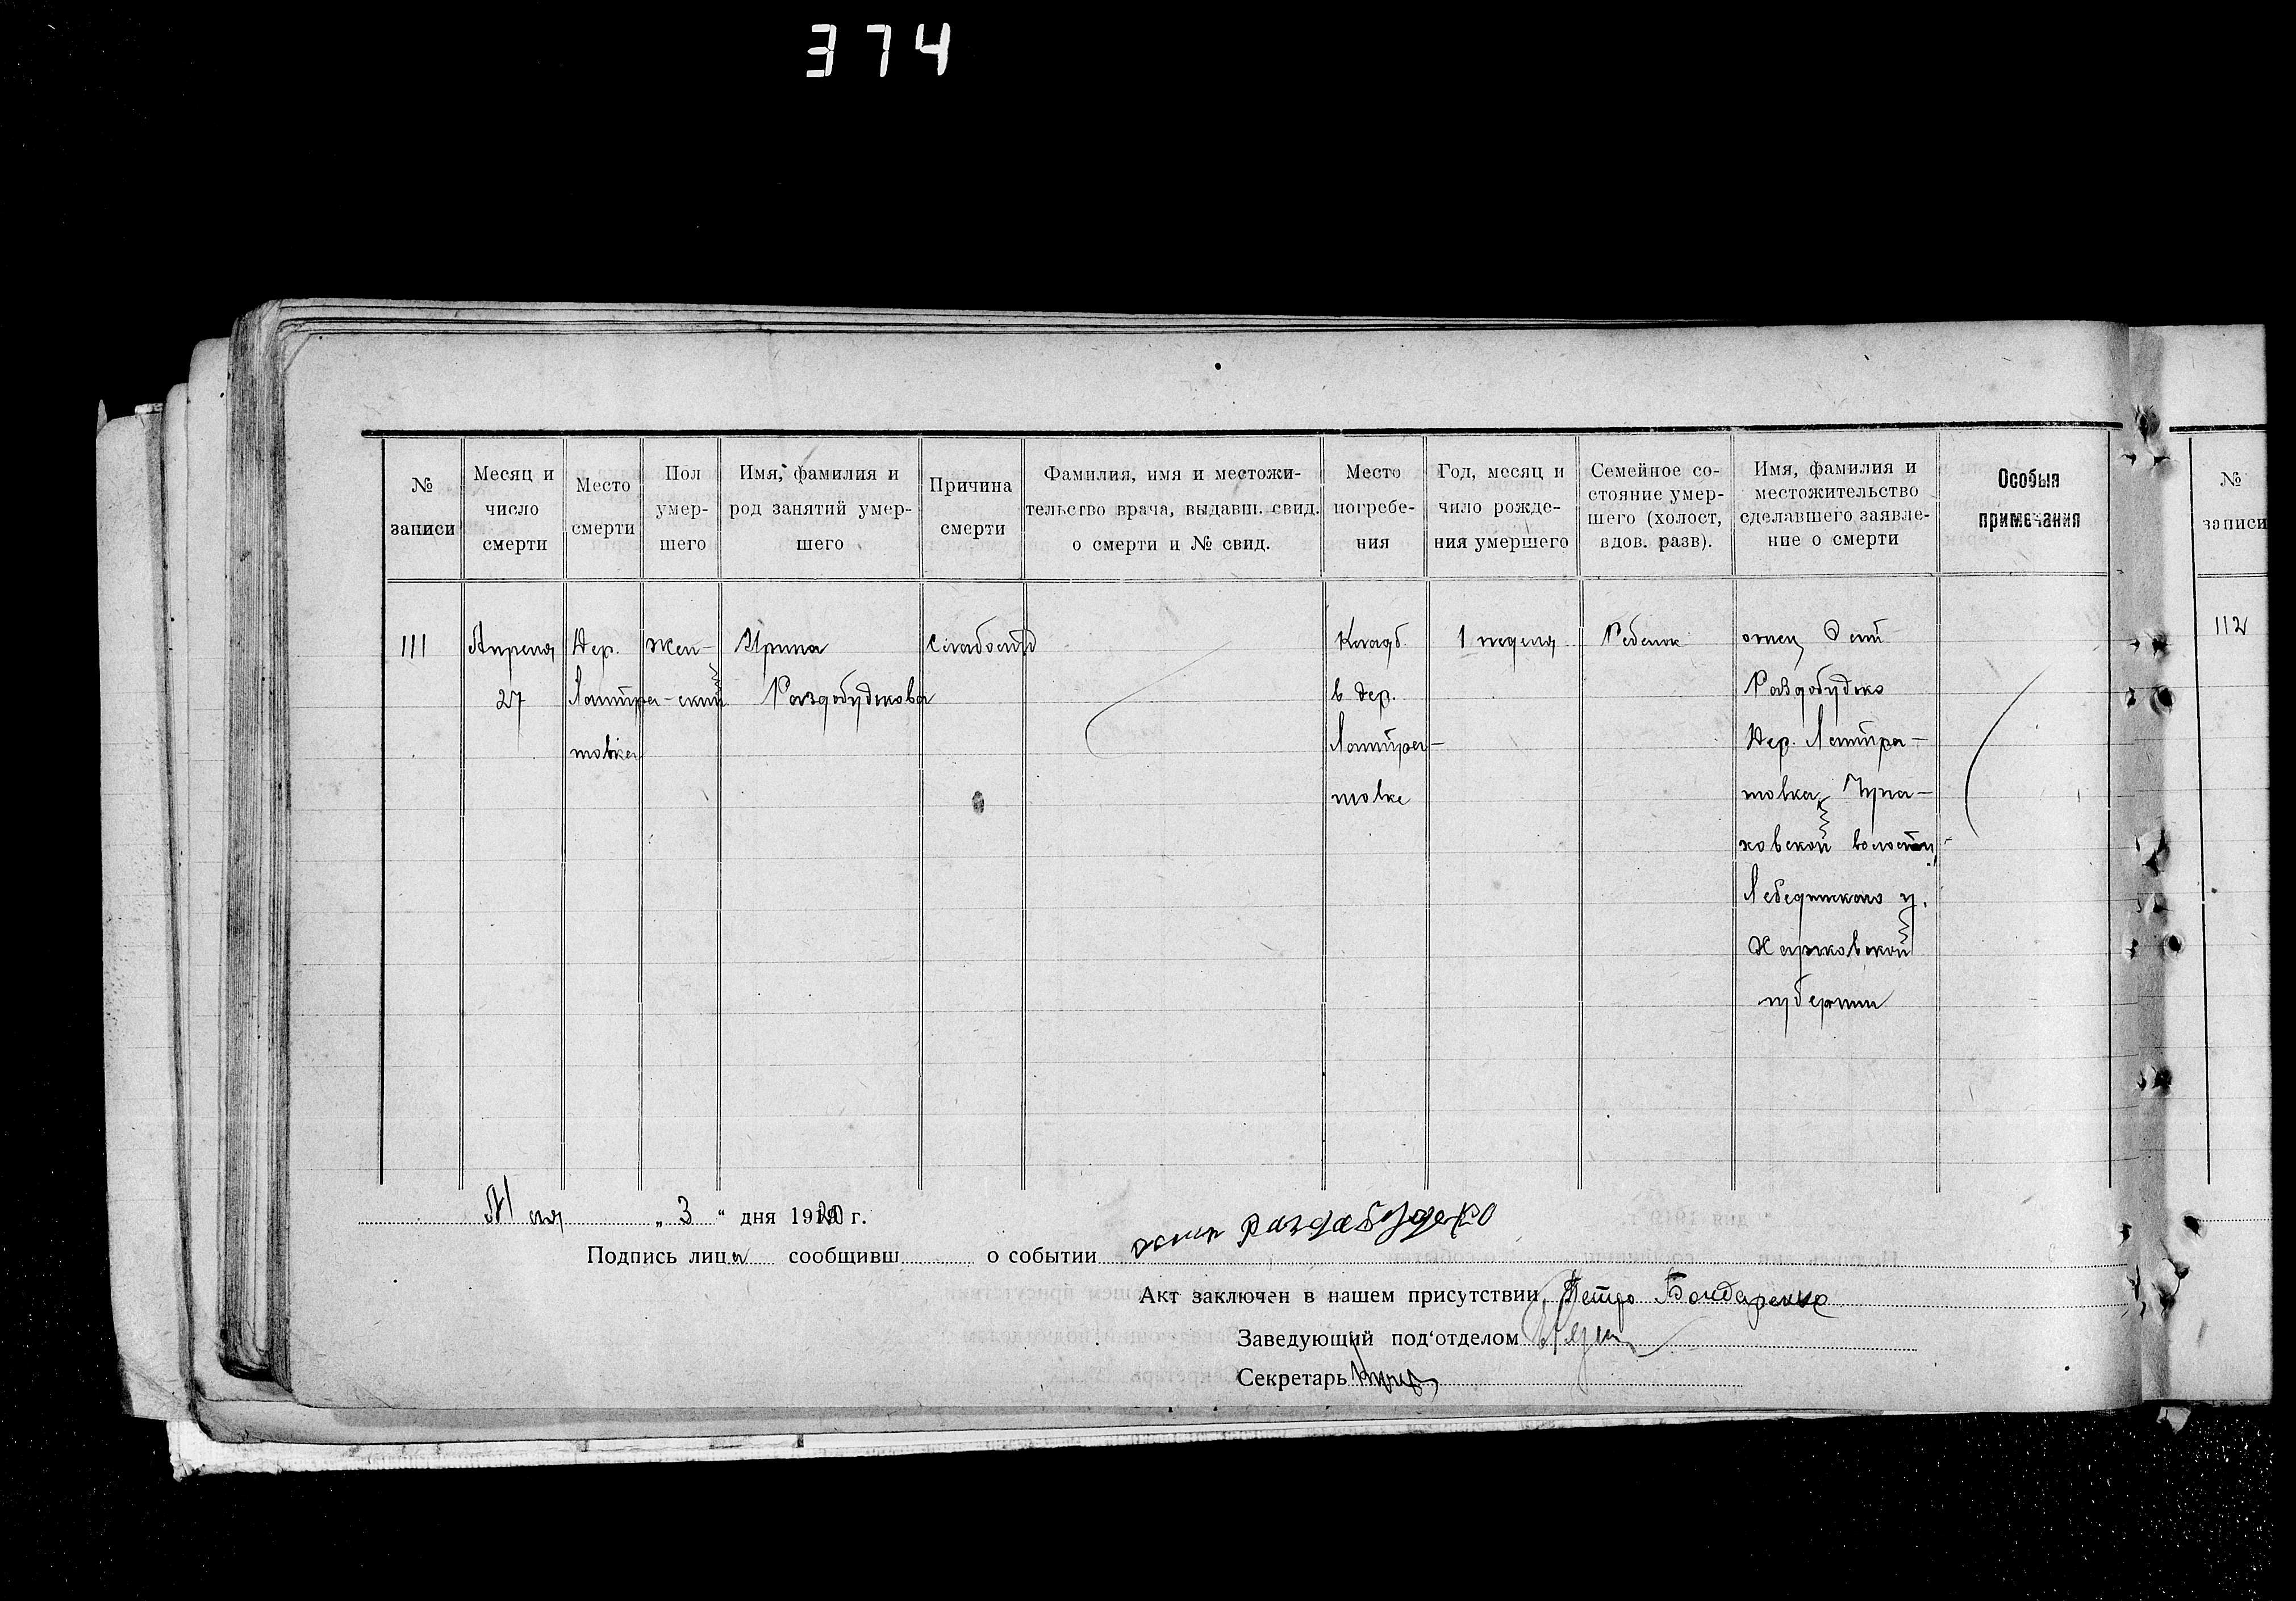 374
№ записи
Месяц и число смерти
Место смерти
Пол умер-шего
Имя, фамилия и род занятий умер-шего
Причина смерти
Фамилия, имя и местожи-тельство врача, выдавш. свид. о смерти и № свид.
Место погребе-ния
Год, месяц и чило рожде-ния умершего
Семейное со-стояние умер-шего (холост, вдов. разв).
Имя, фамилия и местожительство сделавшего заявле-ние о смерти
Особыя примечания
№ записи
111
Апреля
27
Дер.
товка
жен-
ский
Ирина
Раздобудькова
Слабость
Кладб.
в дер.
товке
1 неделя
Ребенок
отец
Раздобудько
Дер.
товка
ховской волости,
Лебединскаго у.
Харьковской
губернии
112
Мая „ 3 “ дня 1920 г.
Подпись лица сообщивш о событии
Акт заключен в нашем присутствии Петро Бондаренко
Заведующий под'отделом
Секретарь